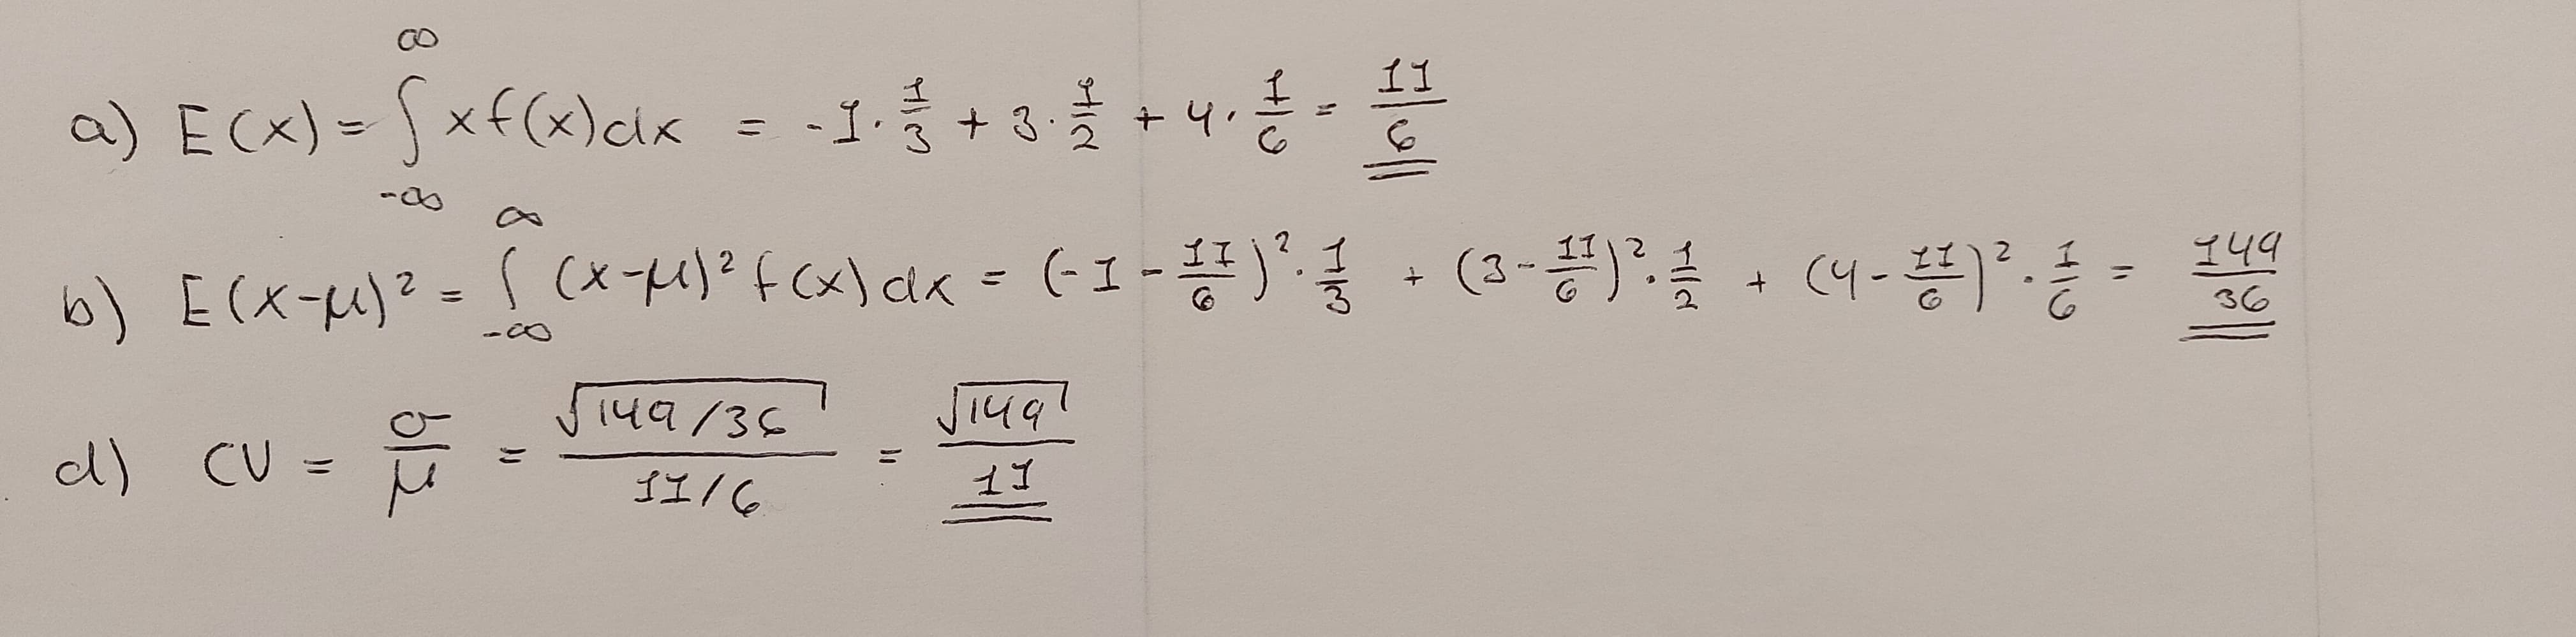 a) E(x) = ∫_{-∞}^{∞} x f(x) dx = -1 · 1/3 + 3 · 1/2 + 4 · 1/6 = 11/6
b) E(x-μ)² = ∫_{-∞}^{∞} (x-μ)² f(x) dx = (-1 - 11/6)² · 1/3 + (3 - 11/6)² · 1/2 + (4 - 11/6)² · 1/6 = 149/36
d) CV = σ/μ = √(149/36) / (11/6) = √149 / 11